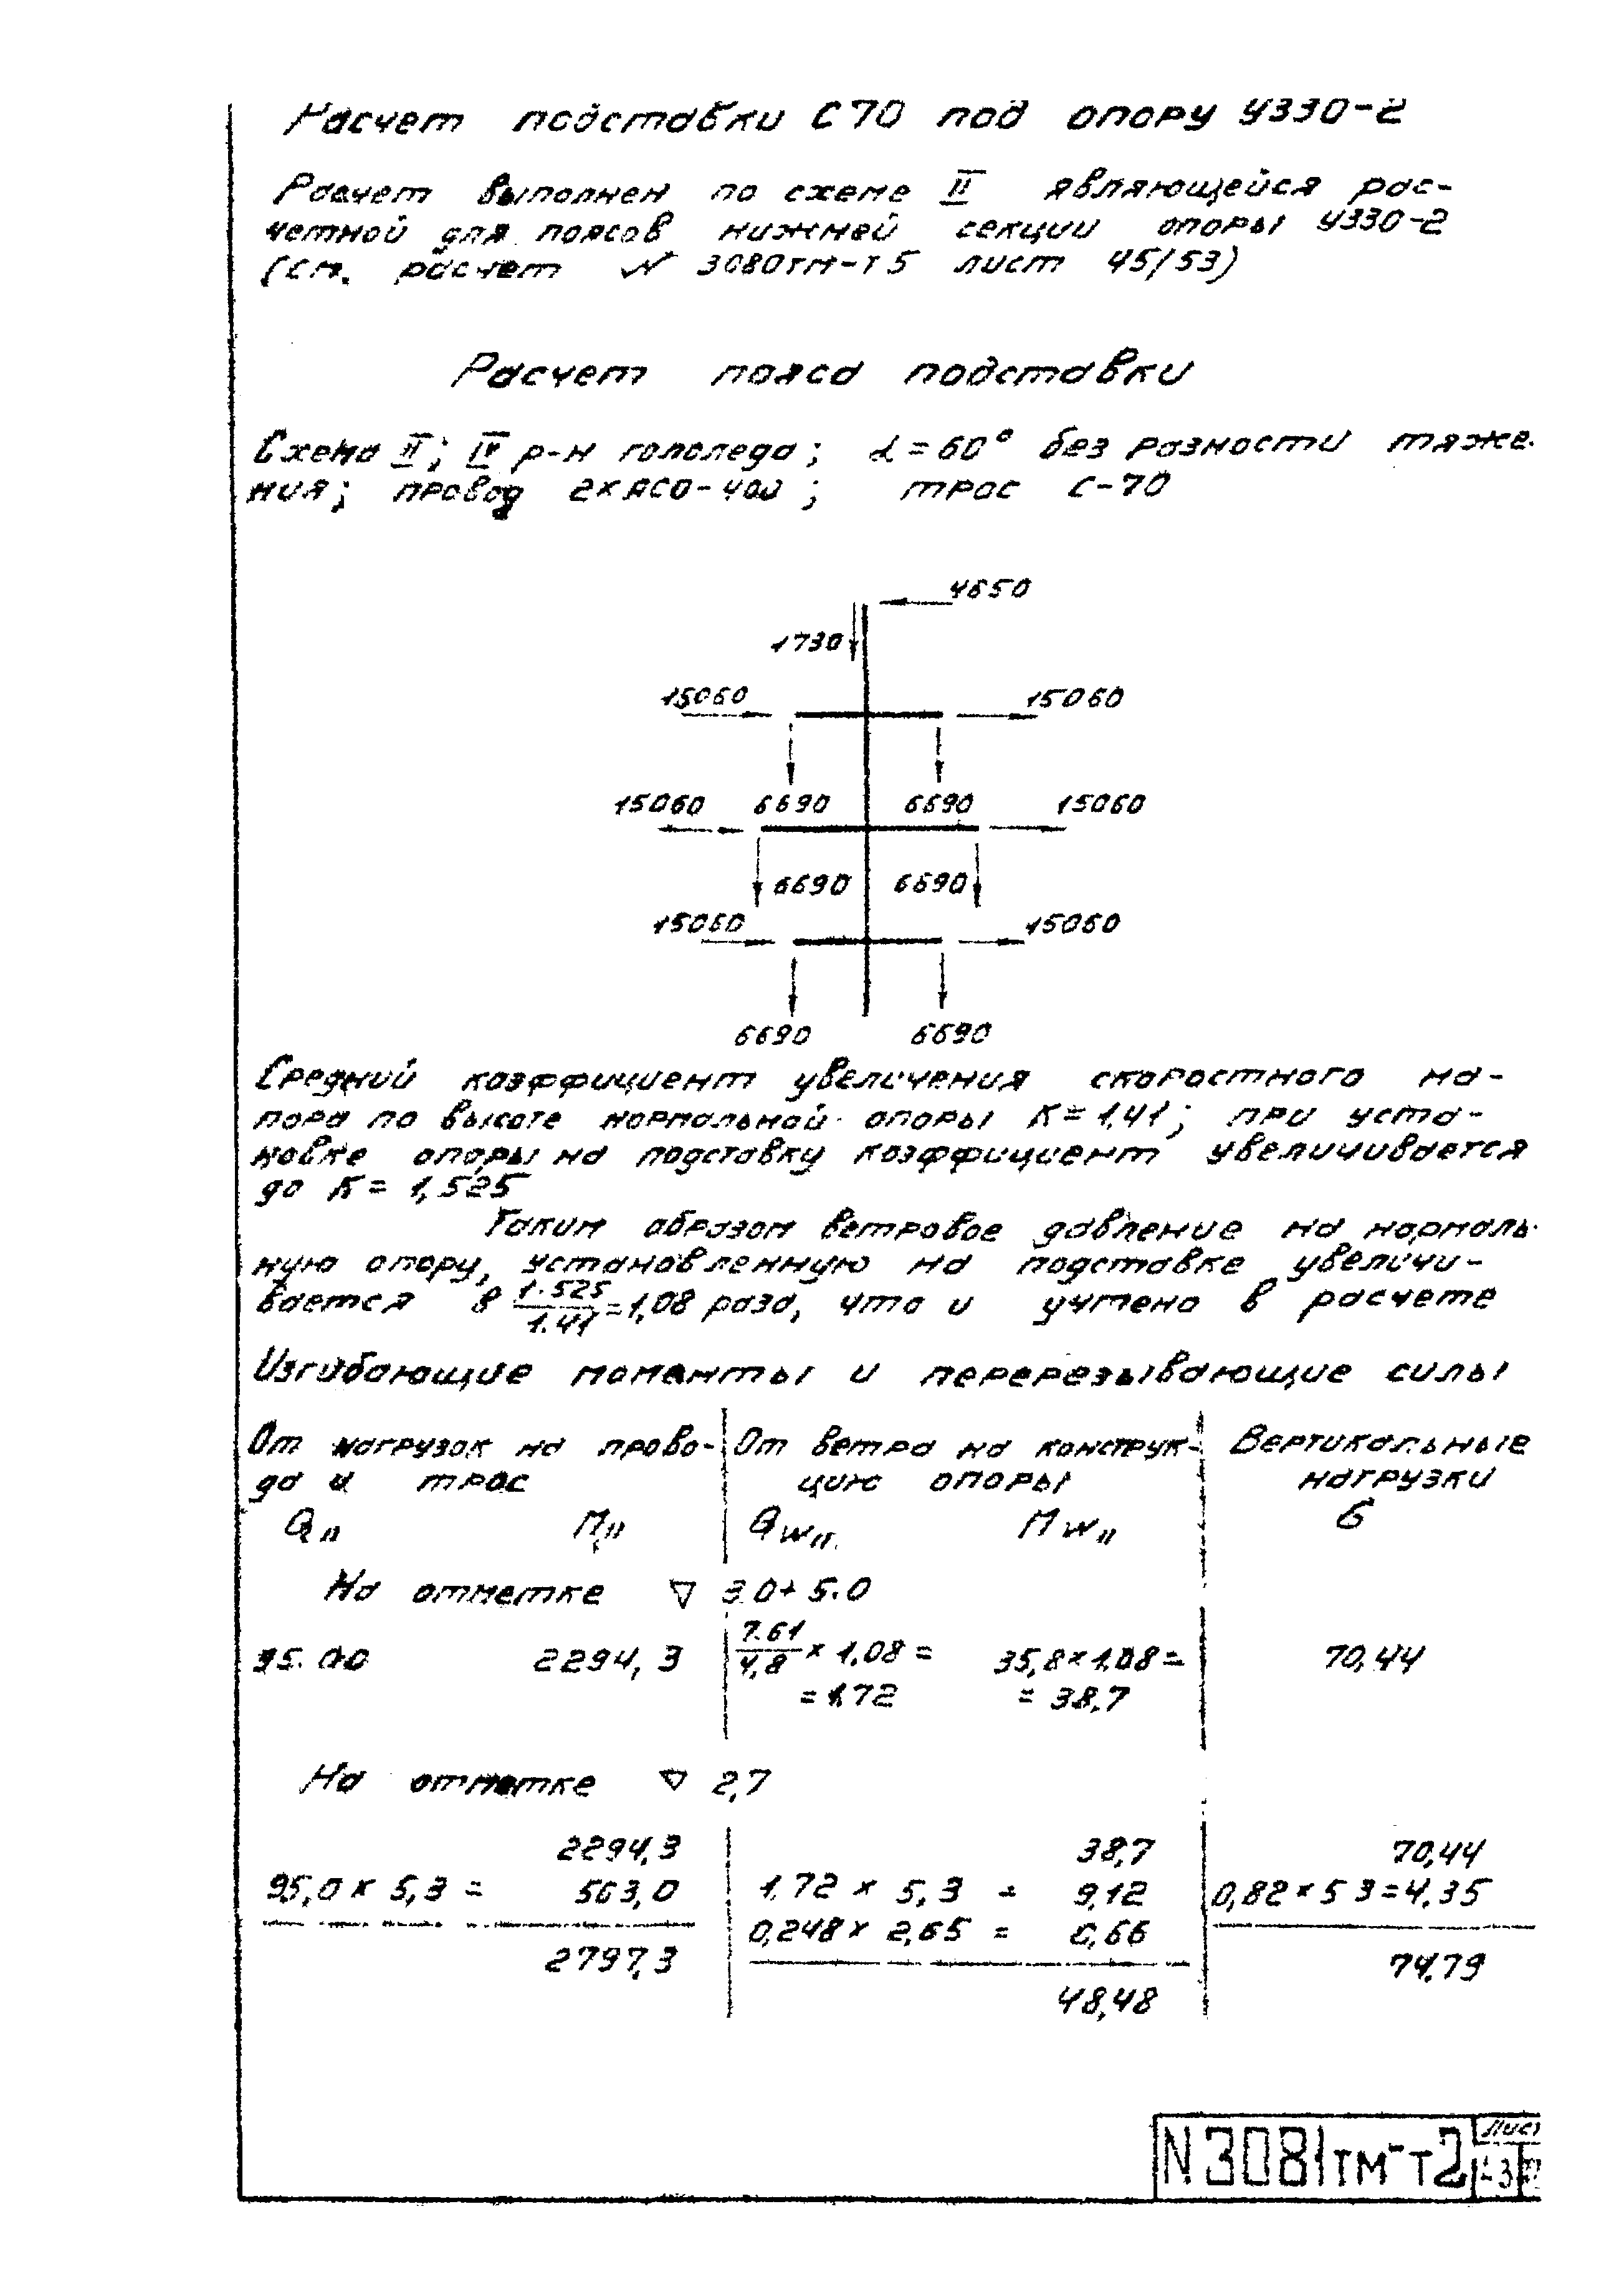 Расчет подставки С70 под опору У330-2
Расчет выполнен по схеме II являющейся рас-
четной для поясов нижней секции опоры У330-2
(см. расчет № 3080тм-т5 лист 45/53)
Расчет пояса подставки
Схема II; IV р-н гололеда; α=60° без разности тяже-
ния; провод 2×АСО-400; трос С-70
4650
1730
15060 15060
15060 6690 6690 15060
6690 6690
15060 15060
6690 6690
Средний коэффициент увеличения скоростного на-
пора по высоте нормальной опоры К=1,41; при уста-
новке опоры на подставку коэффициент увеличивается
до К= 1,525
Таким образом ветровое давление на нормаль-
ную опору, установленную на подставке увеличи-
вается в 1.525/1.41=1,08 раза, что и учтено в расчете
Изгибающие моменты и перерезывающие силы
От нагрузок на прово-
да и трос
От ветра на конструк-
цию опоры
Вертикальные
нагрузки
Qп Mп Qwп Mwп G
На отметке ▽ 3.0+5.0
95.00 2294,3 7.61/4,8 × 1,08 = 35,8×1,08= 70,44
=1,72 = 38,7
На отметке ▽ 2,7
2294,3 38,7 70,44
95,0× 5,3 = 503,0 1.72 × 5,3 = 9,12 0,82×5 3=4.35
0,248× 2,65 = 0,66
2797,3 74.79
48,48
N3081тм-т2
Лист